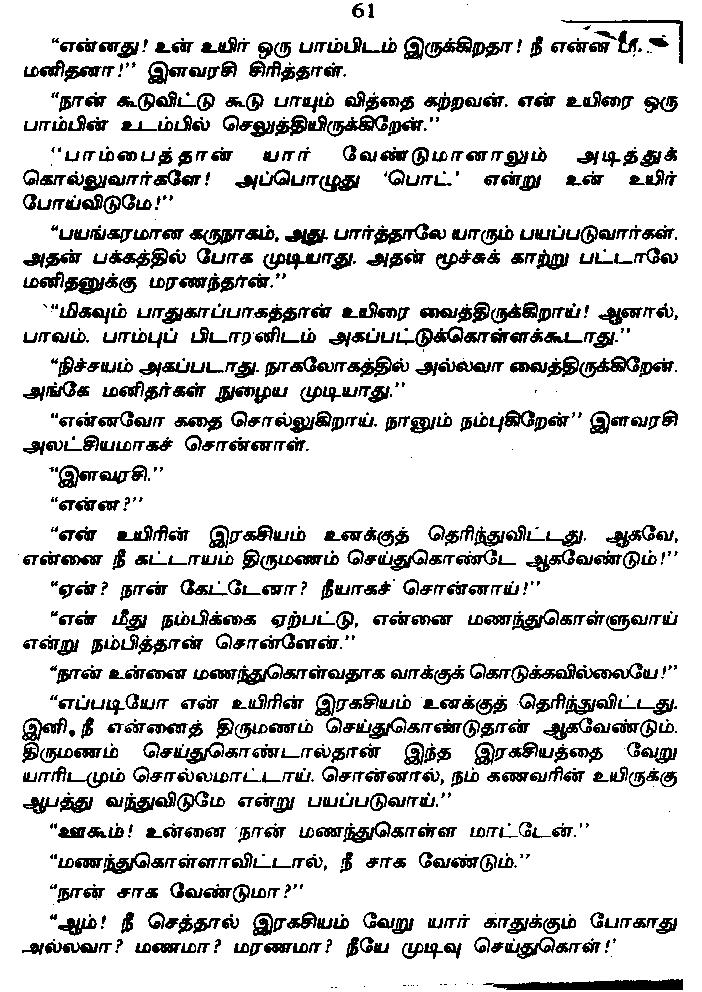 61
“என்னது! உன் உயிர் ஒரு பாம்பிடம் இருக்கிறதா! நீ என்ன
மனிதனா!” இளவரசி சிரித்தாள்.
“நான் கூடுவிட்டு கூடு பாயும் வித்தை கற்றவன். என் உயிரை ஒரு
பாம்பின் உடம்பில் செலுத்தியிருக்கிறேன்.”
“பாம்பைத்தான் யார் வேண்டுமானாலும் அடித்துக்
கொல்லுவார்களே! அப்பொழுது ‘பொட்.’ என்று உன் உயிர்
போய்விடுமே!”
“பயங்கரமான கருநாகம், அது. பார்த்தாலே யாரும் பயப்படுவார்கள்.
அதன் பக்கத்தில் போக முடியாது. அதன் மூச்சுக் காற்று பட்டாலே
மனிதனுக்கு மரணந்தான்.”
“மிகவும் பாதுகாப்பாகத்தான் உயிரை வைத்திருக்கிறாய்! ஆனால்,
பாவம். பாம்புப் பிடாரனிடம் அகப்பட்டுக்கொள்ளக்கூடாது.”
“நிச்சயம் அகப்படாது. நாகலோகத்தில் அல்லவா வைத்திருக்கிறேன்.
அங்கே மனிதர்கள் நுழைய முடியாது.”
“என்னவோ கதை சொல்லுகிறாய். நானும் நம்புகிறேன்” இளவரசி
அலட்சியமாகச் சொன்னாள்.
“இளவரசி.”
“என்ன?”
“என் உயிரின் இரகசியம் உனக்குத் தெரிந்துவிட்டது. ஆகவே,
என்னை நீ கட்டாயம் திருமணம் செய்துகொண்டே ஆகவேண்டும்!”
“ஏன்? நான் கேட்டேனா? நீயாகச் சொன்னாய்!”
“என் மீது நம்பிக்கை ஏற்பட்டு, என்னை மணந்துகொள்ளுவாய்
என்று நம்பித்தான் சொன்னேன்.”
“நான் உன்னை மணந்துகொள்வதாக வாக்குக் கொடுக்கவில்லையே!”
“எப்படியோ என் உயிரின் இரகசியம் உனக்குத் தெரிந்துவிட்டது.
இனி, நீ என்னைத் திருமணம் செய்துகொண்டுதான் ஆகவேண்டும்.
திருமணம் செய்துகொண்டால்தான் இந்த இரகசியத்தை வேறு
யாரிடமும் சொல்லமாட்டாய். சொன்னால், நம் கணவரின் உயிருக்கு
ஆபத்து வந்துவிடுமே என்று பயப்படுவாய்.”
“ஊகூம்! உன்னை நான் மணந்துகொள்ள மாட்டேன்.”
“மணந்துகொள்ளாவிட்டால், நீ சாக வேண்டும்.”
“நான் சாக வேண்டுமா?”
“ஆம்! நீ செத்தால் இரகசியம் வேறு யார் காதுக்கும் போகாது
அல்லவா? மணமா? மரணமா? நீயே முடிவு செய்துகொள்!’